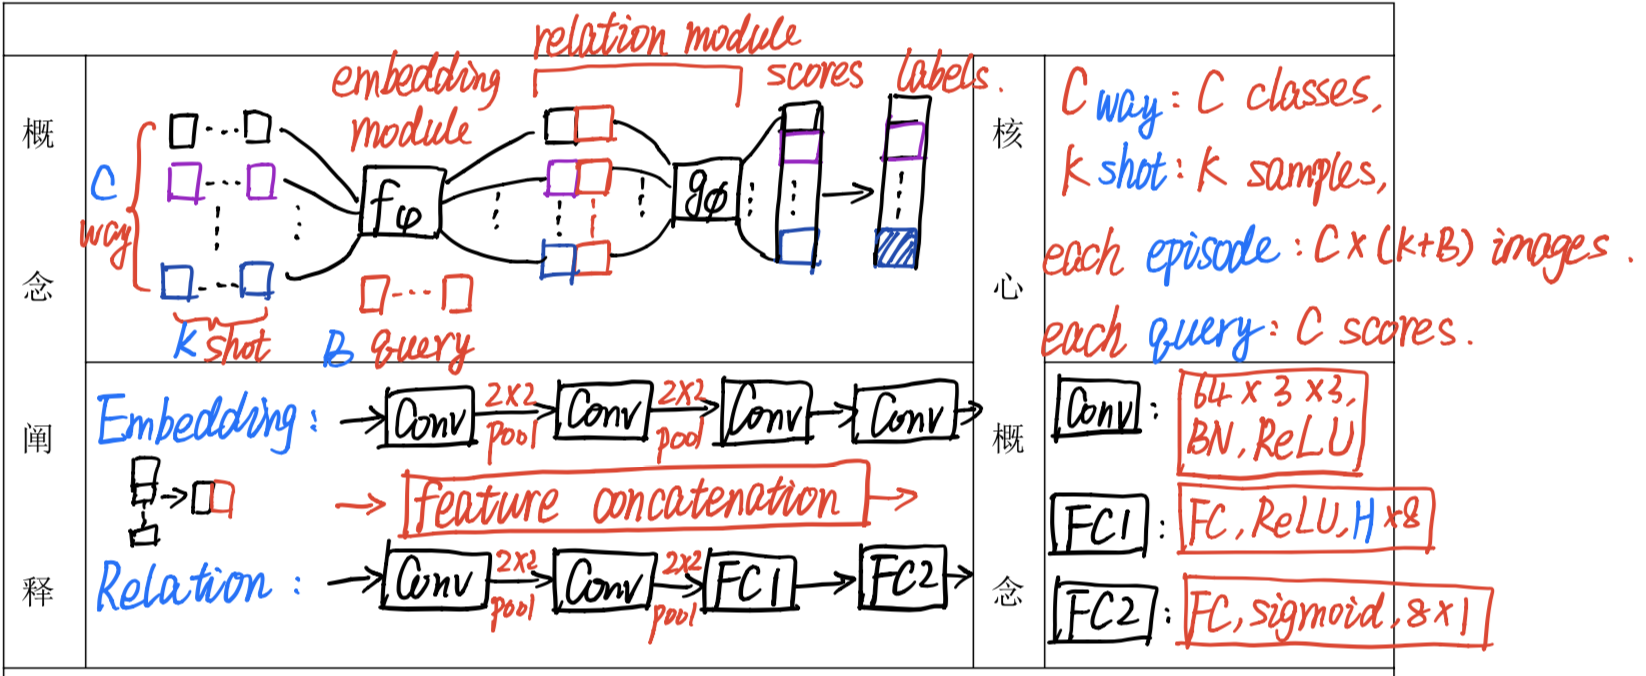 relation module
embedding module
scores
labels.
概念
C way
fφ
gϕ
K shot
B query
核心
C way: C classes,
K shot: K samples,
each episode: C×(K+B) images.
each query: C scores.
阐释
Embedding: Conv 2×2 pool Conv 2×2 pool Conv Conv
feature concatenation
Relation: Conv 2×2 pool Conv 2×2 pool FC1 FC2
概念
Conv: 64×3×3, BN, ReLU
FC1: FC, ReLU, H×8
FC2: FC, sigmoid, 8×1